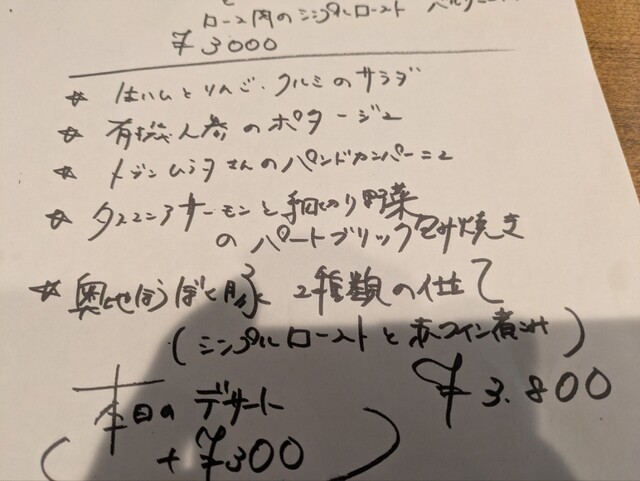 ロース肉のシンプルロースト
¥3000
☆ 生ハムとりんご・クルミのサラダ
☆ 有機人参のポタージュ
☆ さんのパンドカンパーニュ
☆ タスマニアサーモンと野菜
のパートブリック包み焼き
☆ 奥出雲ほうぼく豚 2種類の仕立て
(シンプルローストと赤ワイン煮込み)
¥3.800
本日のデザート
(+¥300)